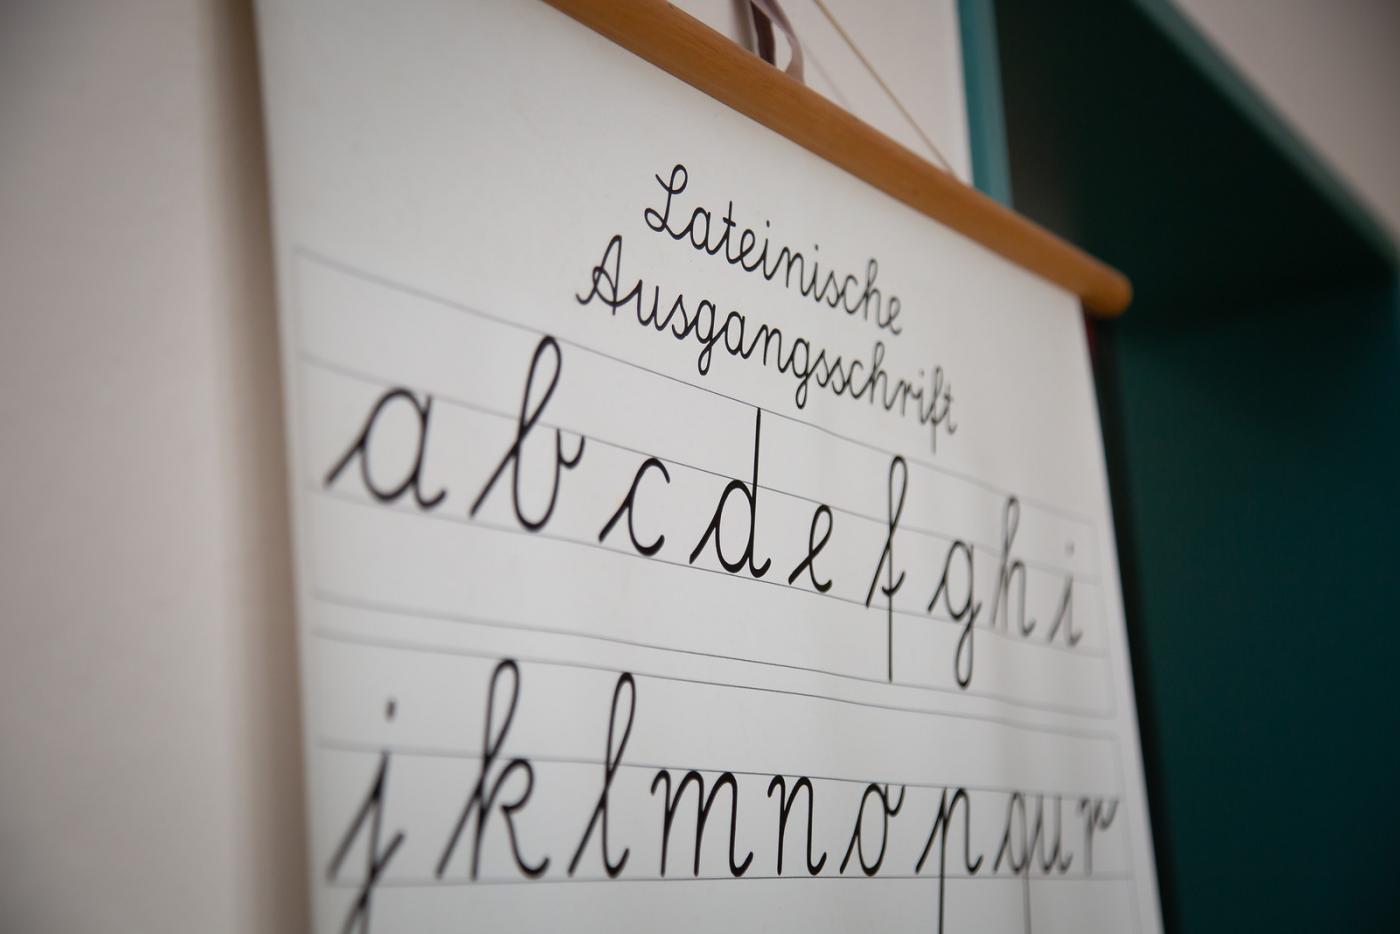 Lateinische
Ausgangsschrift
a b c d e f g h i
j k l m n o p qu r